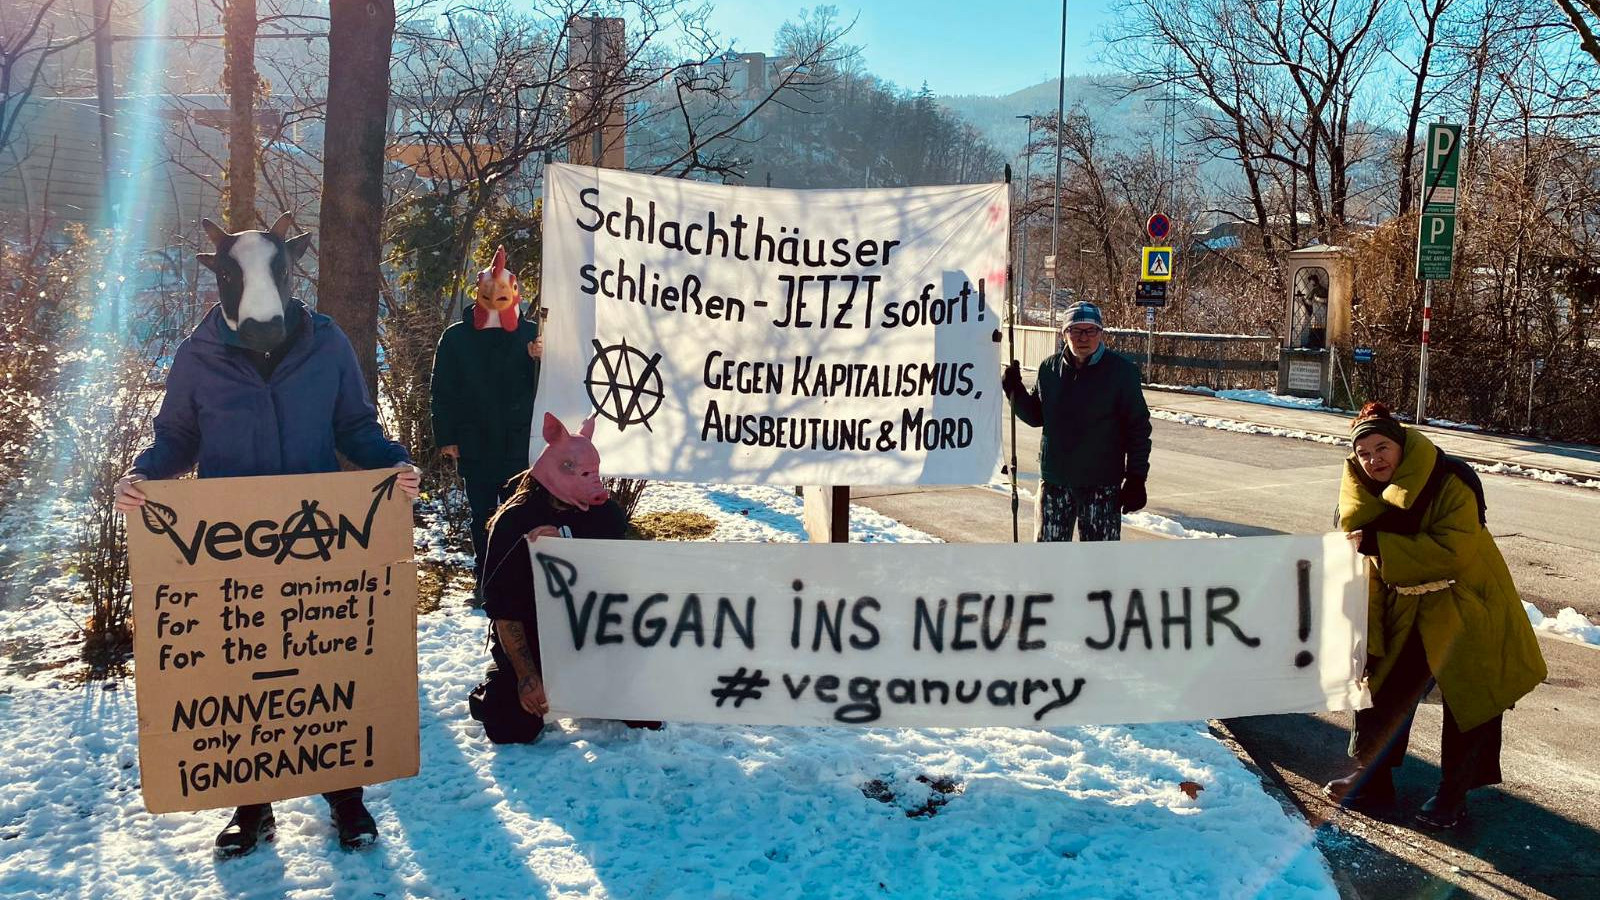 Schlachthäuser
schließen - JETZT sofort!
GEGEN KAPITALISMUS,
AUSBEUTUNG & MORD
VEGAN
For the animals!
For the planet!
For the future!
NONVEGAN
only for your
IGNORANCE!
VEGAN iNS NEUE JAHR!
#veganuary
P
P